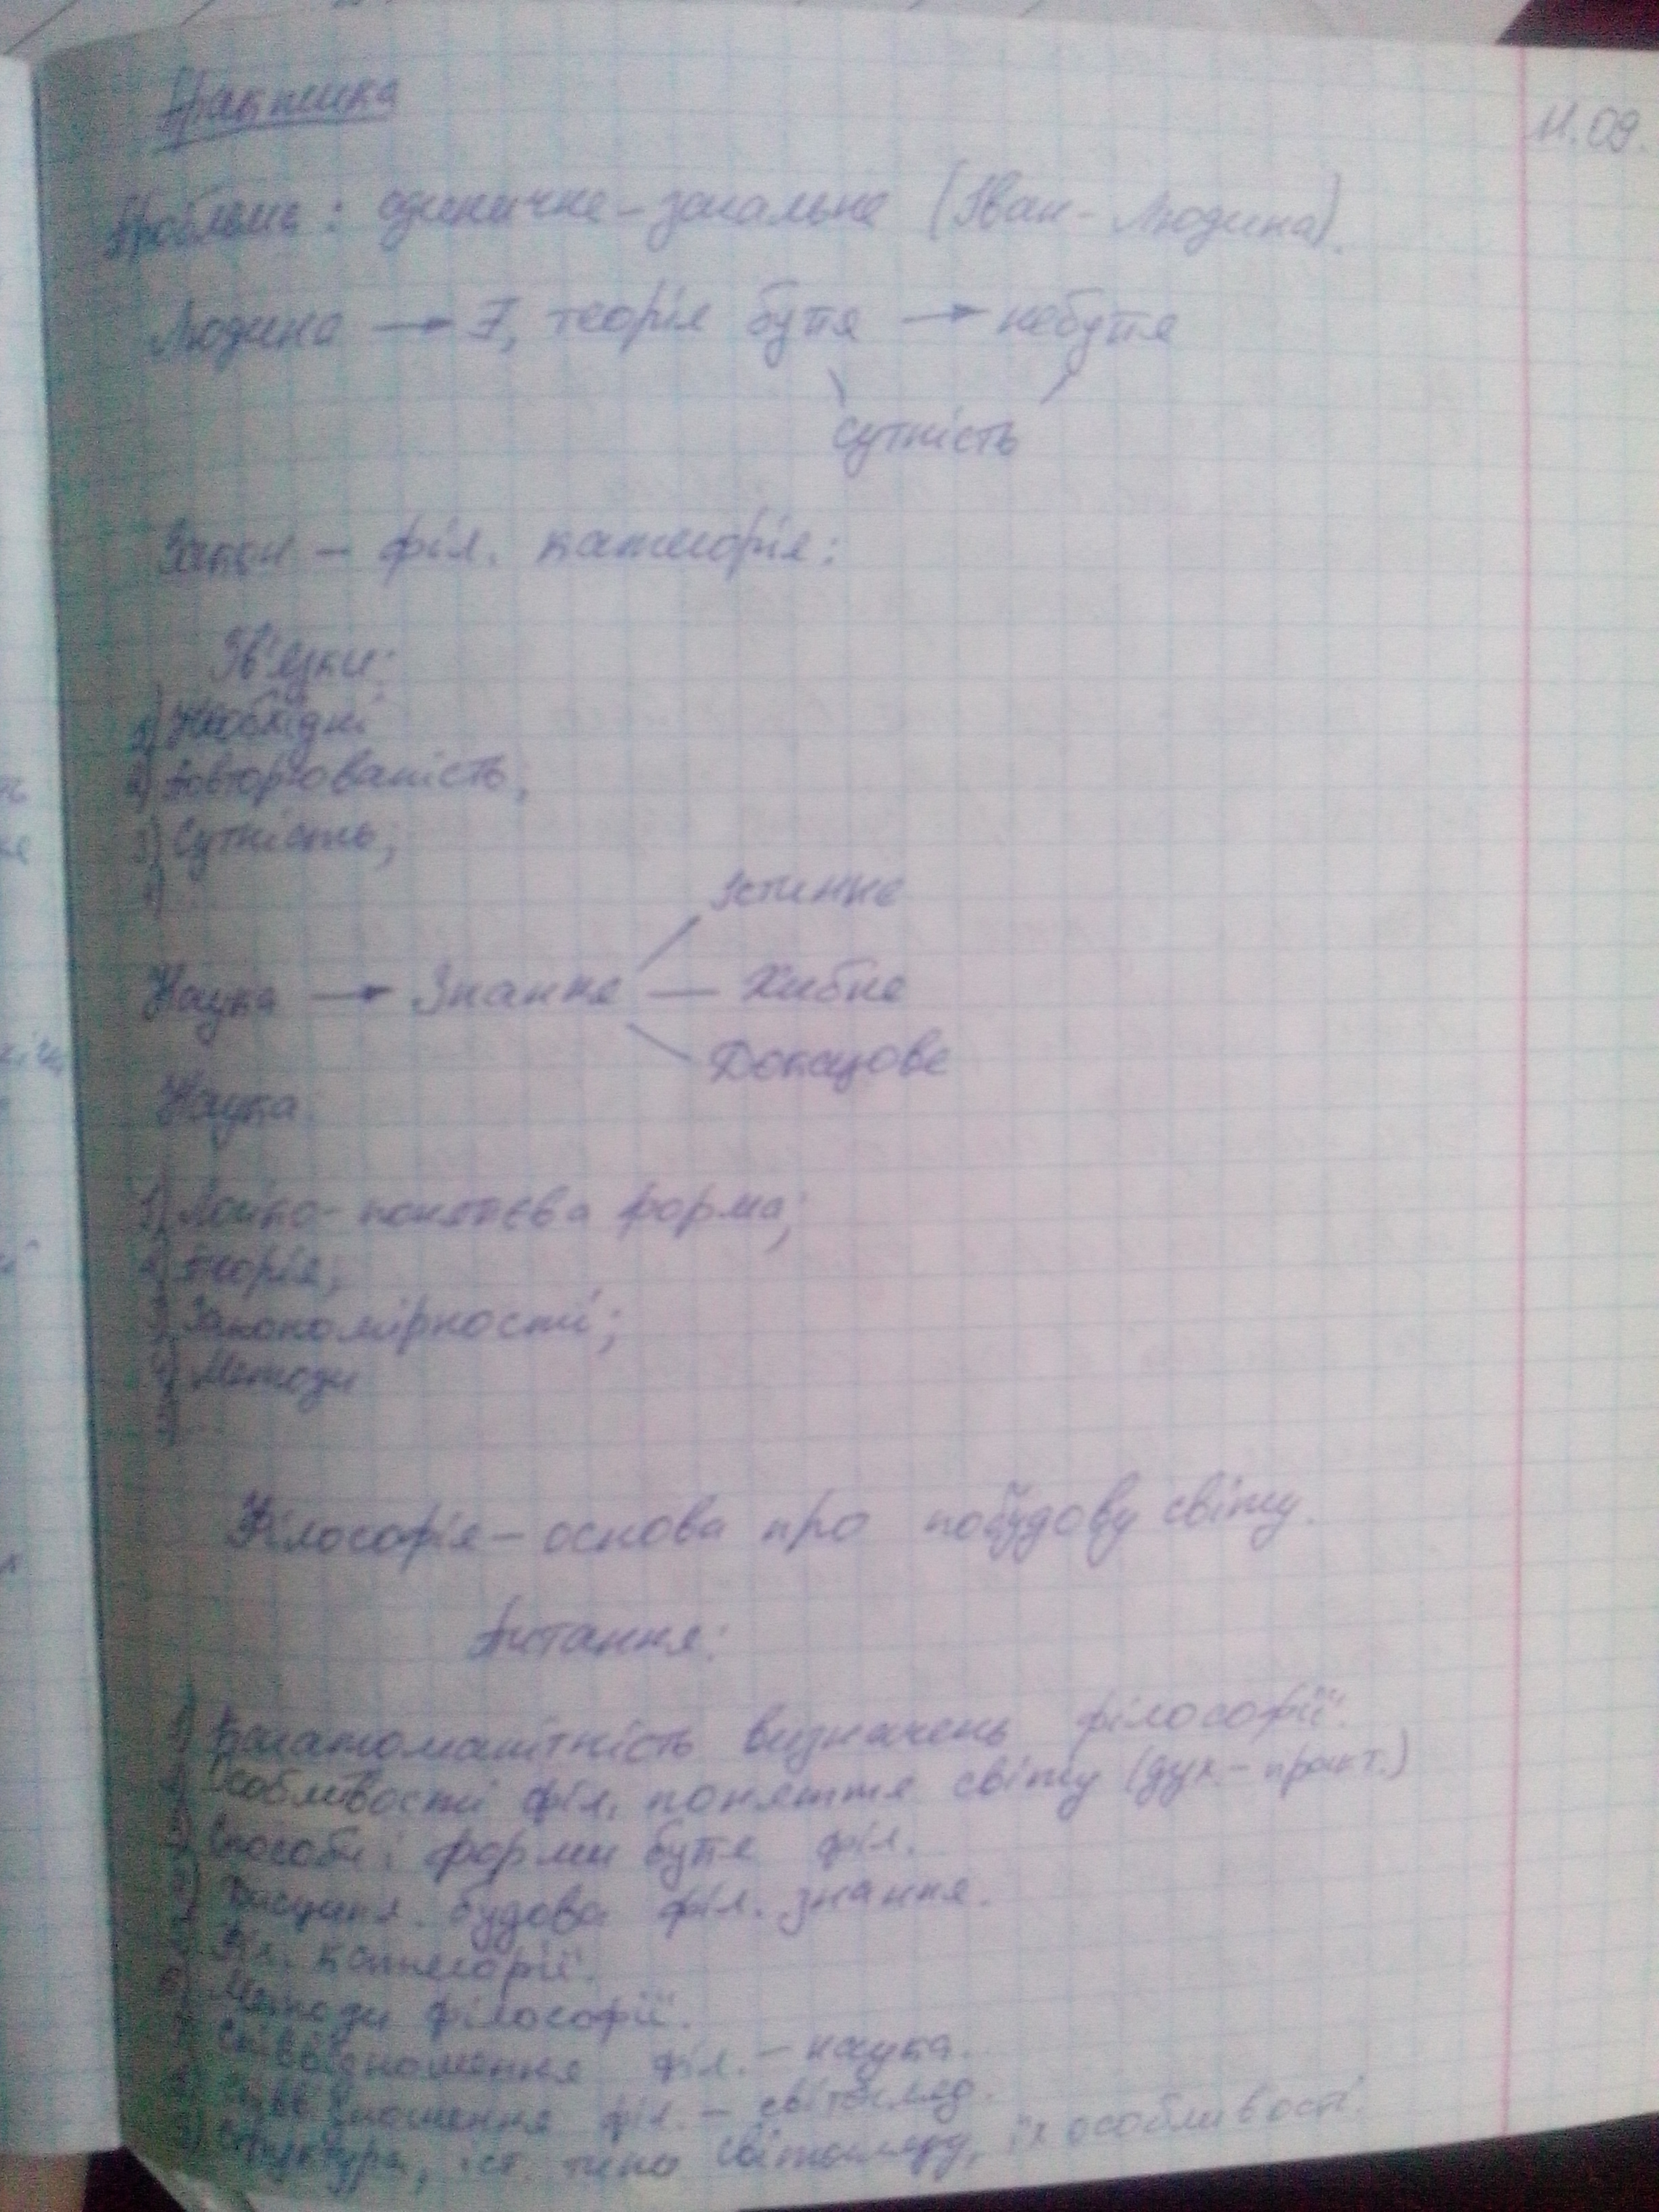 Практика
11.09.
Проблема: одиничне – загальне (Іван – Людина).
Людина → Я, теорія буття → небуття
сутність
Закон – філ. категорія:
Зв'язки:
1) Необхідні
2) Повторюваність;
3) Сутність;
4) ...
Істинне
Наука → Знання — Хибне
Доказове
Наука
1) Логіко-понятєва форма;
2) Теорія;
3) Закономірності;
4) Методи
5) ...
Філософія – основа про побудову світу.
Питання:
1) Багатоманітність визначень філософії.
2) Особливості філ. поняття світу (дух.-практ.)
3) Способи і форми буття філ.
4) будова філ. знання.
5) Філ. категорії.
6) Методи філософії.
7) Співвідношення філ. – наука.
8) Співвідношення філ. – світогляд.
9) Структура, іст. типи світогляду, їх особливості.